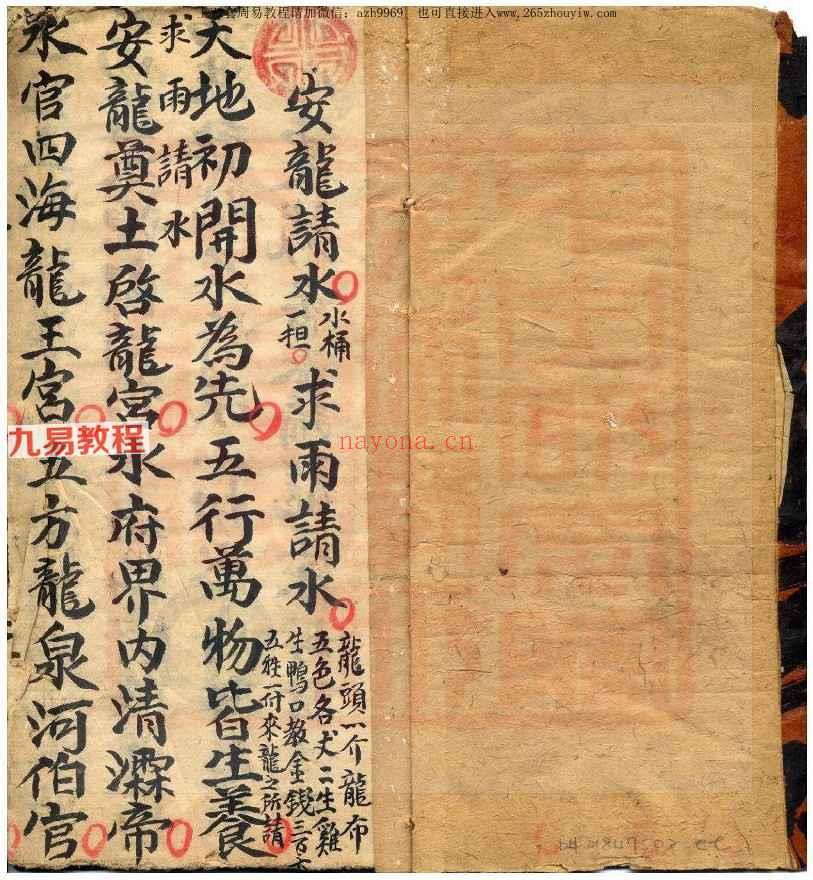 周易教程请加微信：azh9969 也可直接进入www.265zhouyiw.com
安龍請水
水桶
一担
求雨請水
龍頭 介龍布
五色各 二生雞
生鴨口教金錢三百
五牲一付來龍之所請
天地初開水為先五行萬物皆生養
求雨請水
安龍奠土啓龍宮水府界内清 帝
水官四海龍王宮五方龍泉河伯官
九易教程
nayona.cn